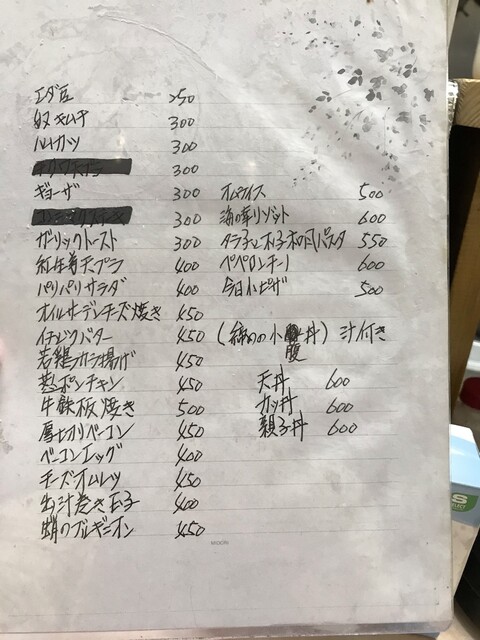 エダ豆 250
奴キムチ 300
ハムカツ 300
300
ギョーザ 300
300
ガーリックトースト 300
紅生姜天プラ 400
パリパリサラダ 400
オイルサーデンチーズ焼き 450
イチジクバター 450
若鶏カラ揚げ 450
熱ポンチキン 450
牛鉄板焼き 500
厚切りベーコン 450
ベーコンエッグ 400
チーズオムレツ 450
出汁巻き玉子 400
蛸のブルギニオン 450
オムライス 500
海の幸リゾット 600
タラ子と木子和風パスタ 550
ペペロンチーノ 600
今日小ピザ 500
(〆の小丼) 汁付き
腹
天丼 600
カツ丼 600
親子丼 600